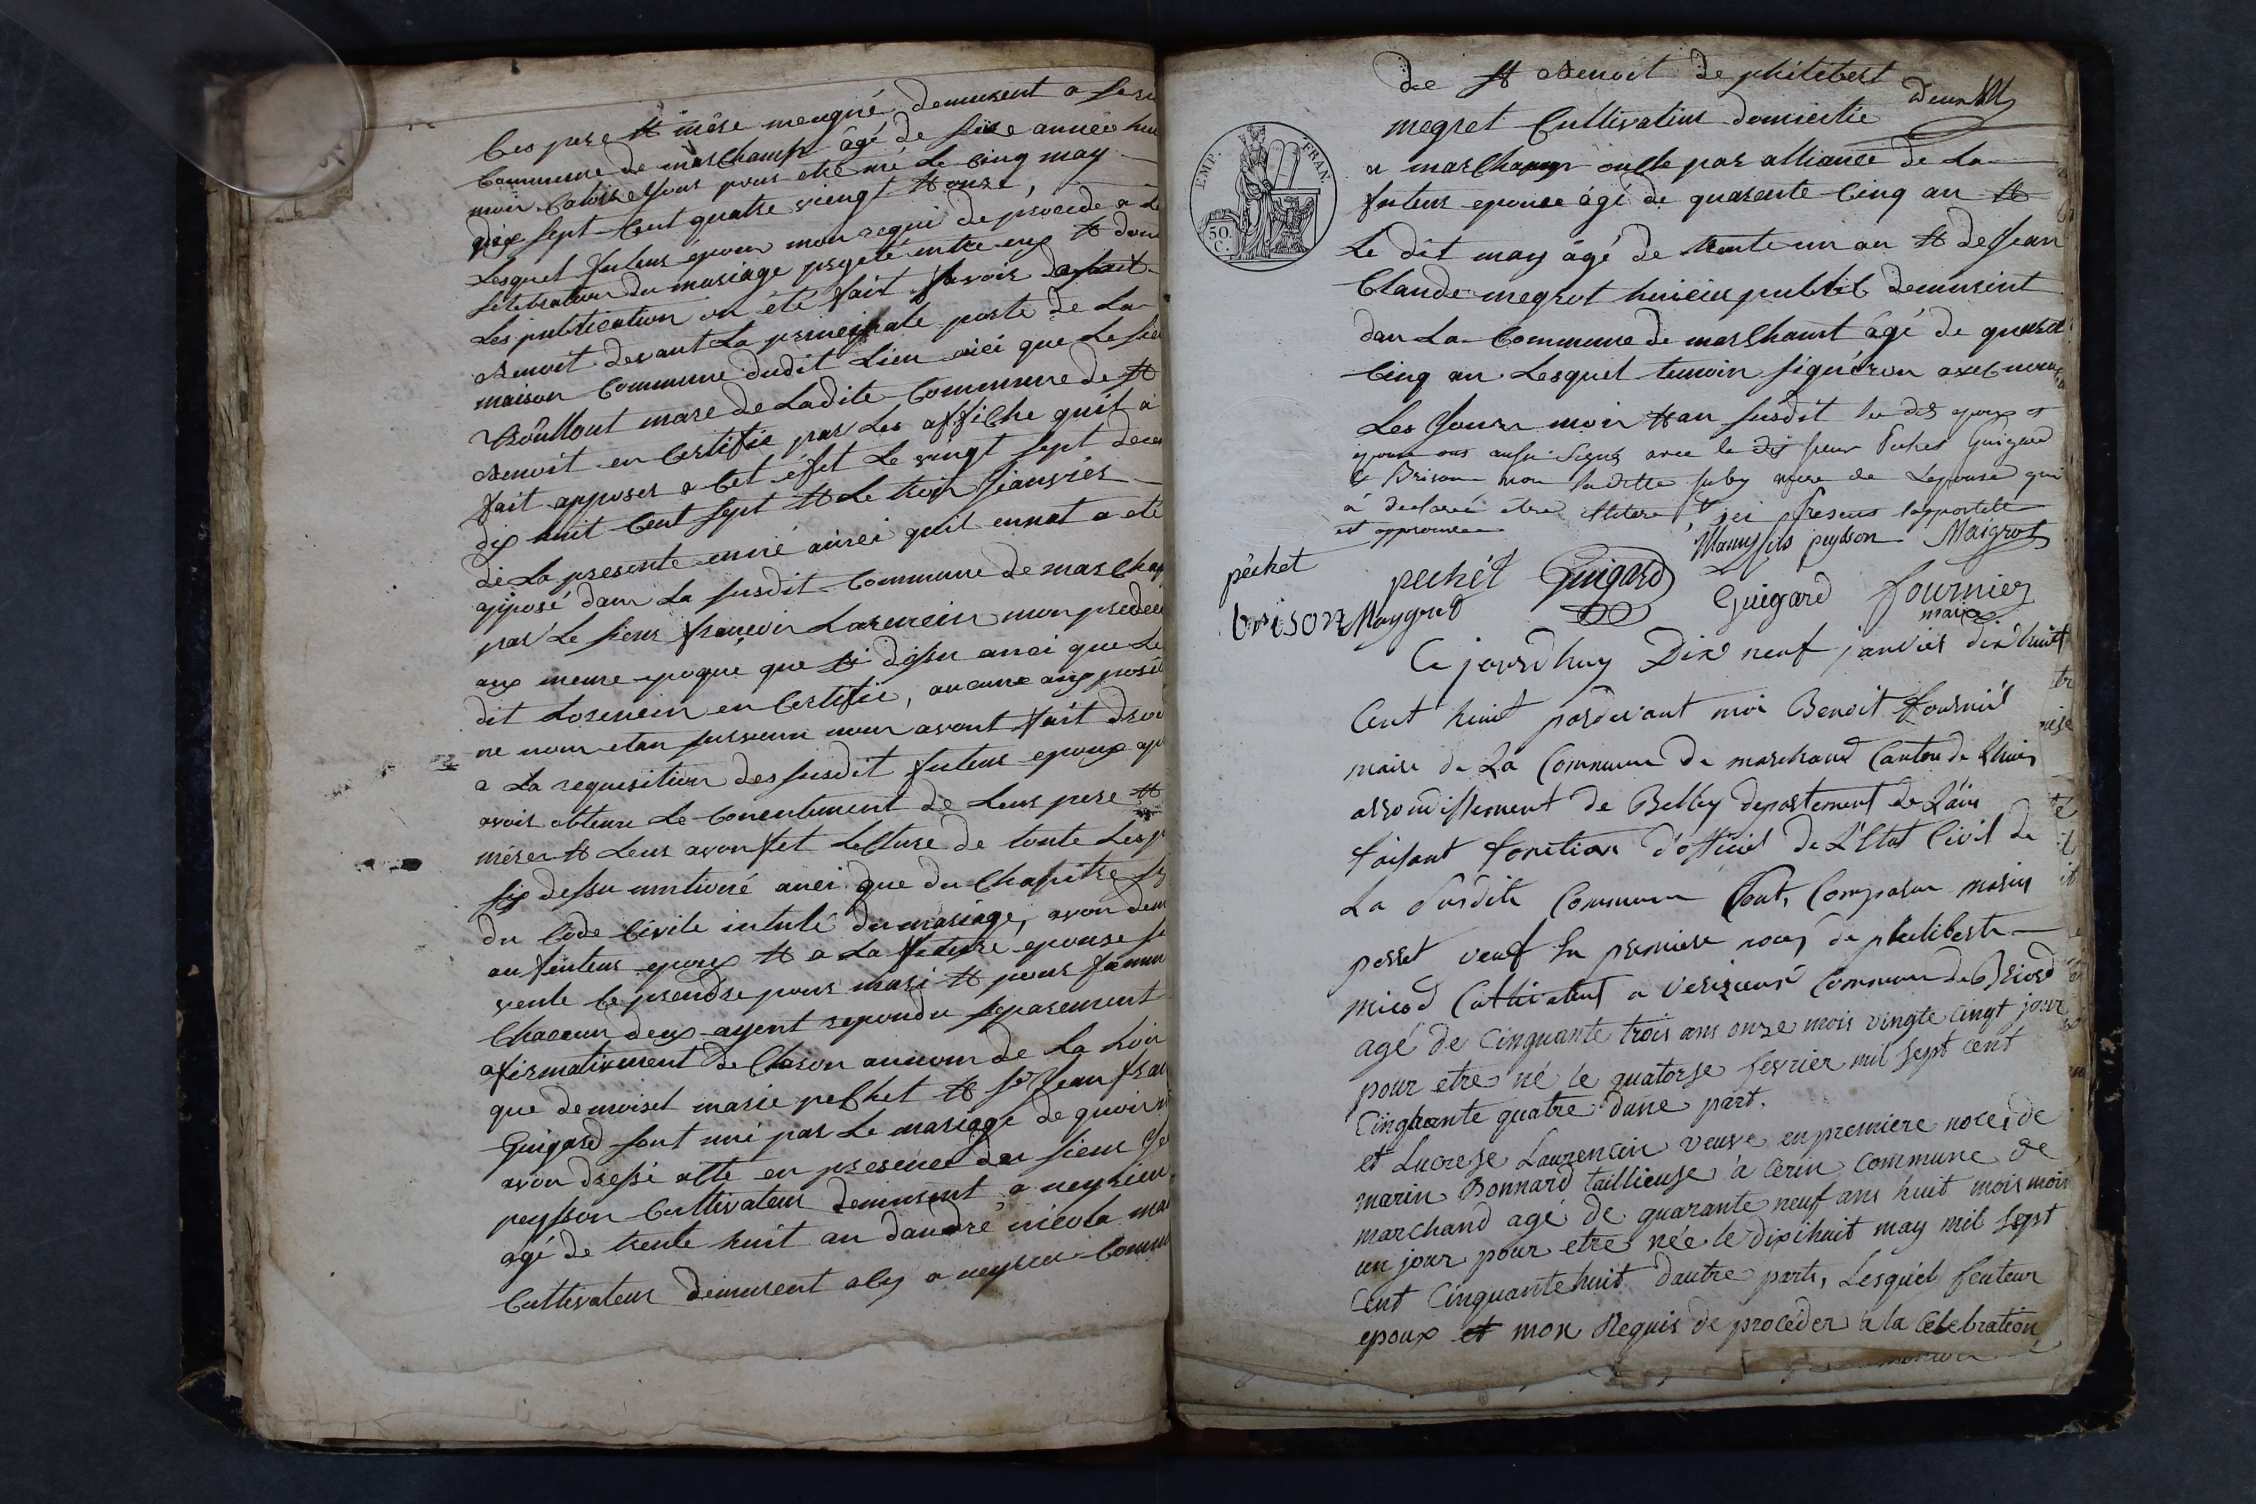 Ces pere & mêre meugné demeurent a
Commune de marchamp âgé de seize année huit
moir Catorse Jour pour etre né Le Cinq may
dix sept Cent quatre vingt & onze,
Lesquel futeur épour mon requi de procéde a La
selebration du mariage progeté entre eux & dont
Les publication on été fait savoir
Benoit devant La principale porte de La
maison Commune dudit Lieu ainci que Le sieur
Roullout mare de Ladite Commune de St
Benoit en Certifie par Les affiche quil a
fait apposer a Cet éfet Le vingt sept
dix huit Cent sept & Le troi jeanvier
de La presente anné ainci quil ennat a été
apposé dans La susdit Commune de marchamp
par Le sieur françoir Lorencin mon
aux meme epoque que si desu ainci que Le
dit Lorencin en Certifie, aucune aupposit
ne nour etan survenu nour avont fait droi
a La requisition des susdit futeur epoux
avoir obtenu Le Concentement de Leur pere &
mérer & Leur avon fet Lecture de toute Les
six dessu mentioné ainci que du Chapitre
du Code Civile intulé du mariage, avon
au feuteur epoux & a La future epouse
veule Ce prendre pour mari & pour famme
Chaceun deux ayent repondu separement
afirmativement de Claron aunom de La Loir
que demoisel marie pechet & sr Jean
Guigard sont uni par Le mariage de quoir
avon dressé acte en presence du sieur
peysson Cultivateur demeurent a neyrieu
âgé de trente huit an dandré nicola
Cultivateur demeurent aley a neyrieu Commune
de St Benoit de philibert
megret Cultivateur domicilie
a marchamp oncle par alliance de La
futeur epouse âgé de quarente Cinq an &
Le dit may âgé de trente un an & de Jean
Claude megrot huicier publit demeurint
dan La Commune de marchamt âgé de quarent
Cinq an Lesquel temoin signéron avec nous
Les Jour moir & an susdit les dis epoux et
epouse ons aussi signés avec le dit sieur Pichet Guigard
& Brison non ladite juby mere de Lepouse qui
à declaré etre illitere,
est approuvée
EMP. FRAN.
50. C.
Manuy fils peysson Maigrot
pêchet
pechét Guigard Guigard fournier
maire
brison Maygrot
Ce jourdhuy Dix neuf janvier dix huit
Cent huit pardevant moi Benoit fournier
maire de La Commune de marchand Canton de Lhuis
arrondissement de Belley departement de Lain
faisant fonction d'officier de L'Etat Civil de
La susdite Commune sont Comparu marin
perret veuf en premiere noces de philiberte
micod Cultivateur a verizieux Commune de Briord
agé de Cinquante trois ans onze mois vingte cingt jour
pour etre né le quatorse fevrier mil sept cent
Cinquante quatre dune part.
et Lucrese Laurencin veuve en premiere noces de
marin Bonnard taillieuse à Cerin Commune de
marchand age de quarante neuf ans huit mois moin
un jour pour etre née le dix huit may mil sept
Cent Cinquante huit dautre part, Lesquel feuteur
epoux et mon Requis de procéder à la Celebration